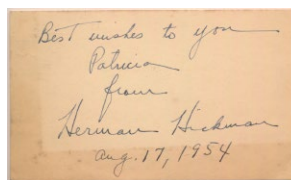 Best wishes to you
Patricia
from
Herman Hickman
Aug. 17, 1954